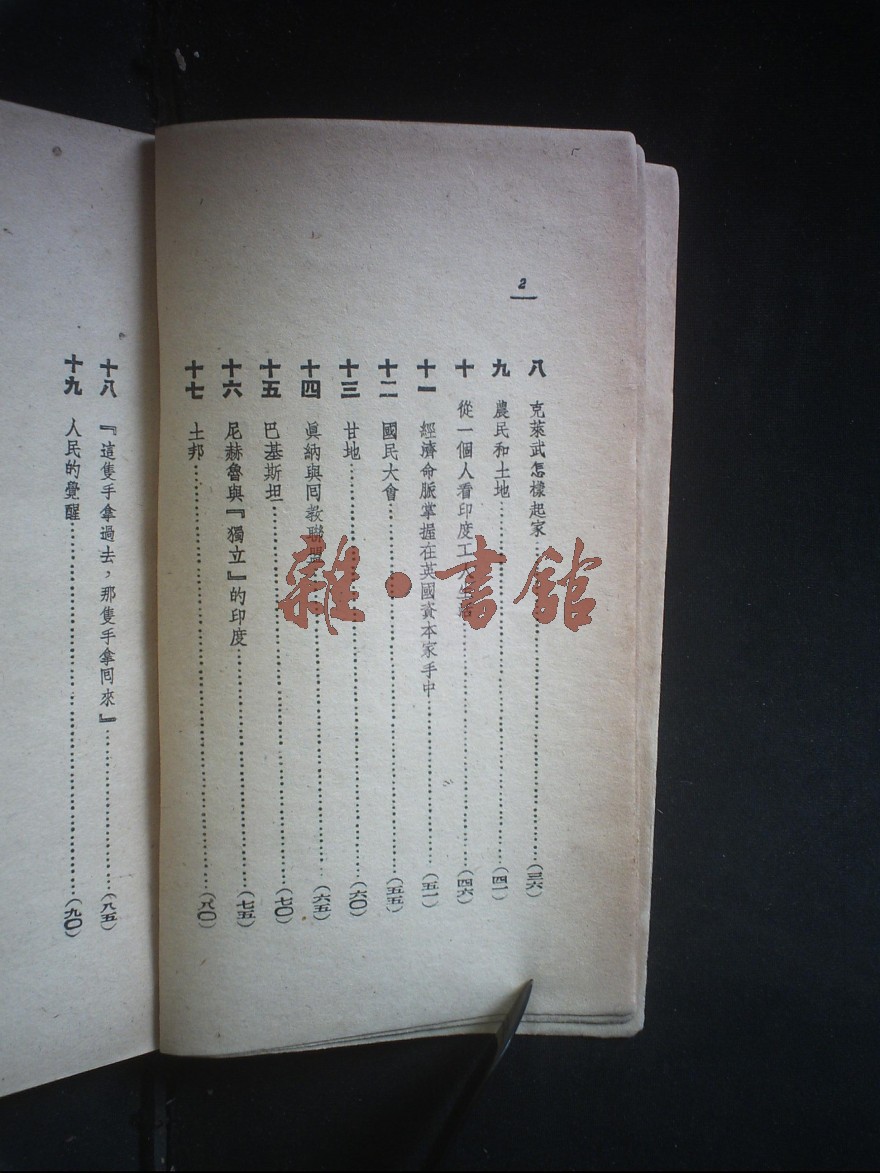 2
八 克萊武怎樣起家……(三六)
九 農民和土地……(四一)
十 從一個人看印度工人生活……(四六)
十一 經濟命脈掌握在英國資本家手中……(五一)
十二 國民大會……(五五)
十三 甘地……(六〇)
十四 眞納與囘敎聯盟……(六五)
十五 巴基斯坦……(七〇)
十六 尼赫魯與『獨立』的印度……(七五)
十七 土邦……(八〇)
十八 『這隻手拿過去，那隻手拿囘來』……(八五)
十九 人民的覺醒……(九〇)
雜·書館